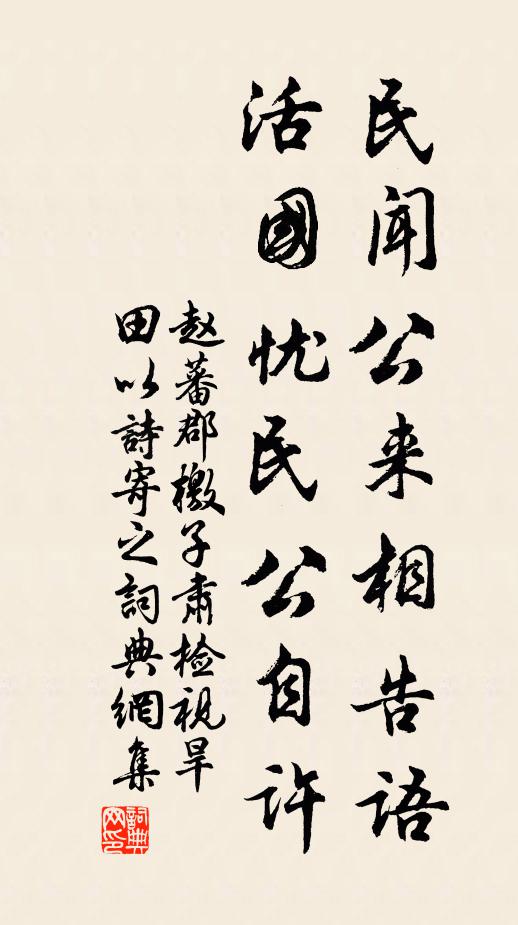 民闻公来相告语
活國忧民公自许
赵蕃郡檄子肃检视旱
田以詩寄之詞典網集
詞典网印